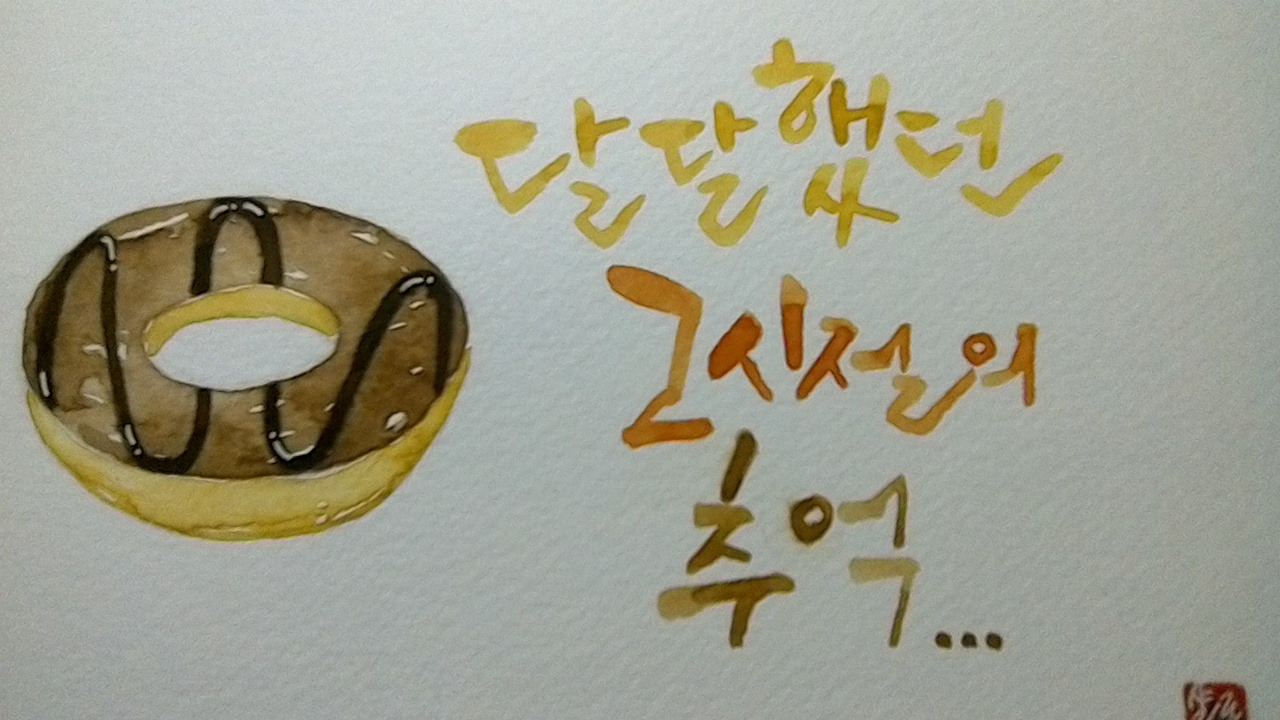 달달했던
그시절의
추억...